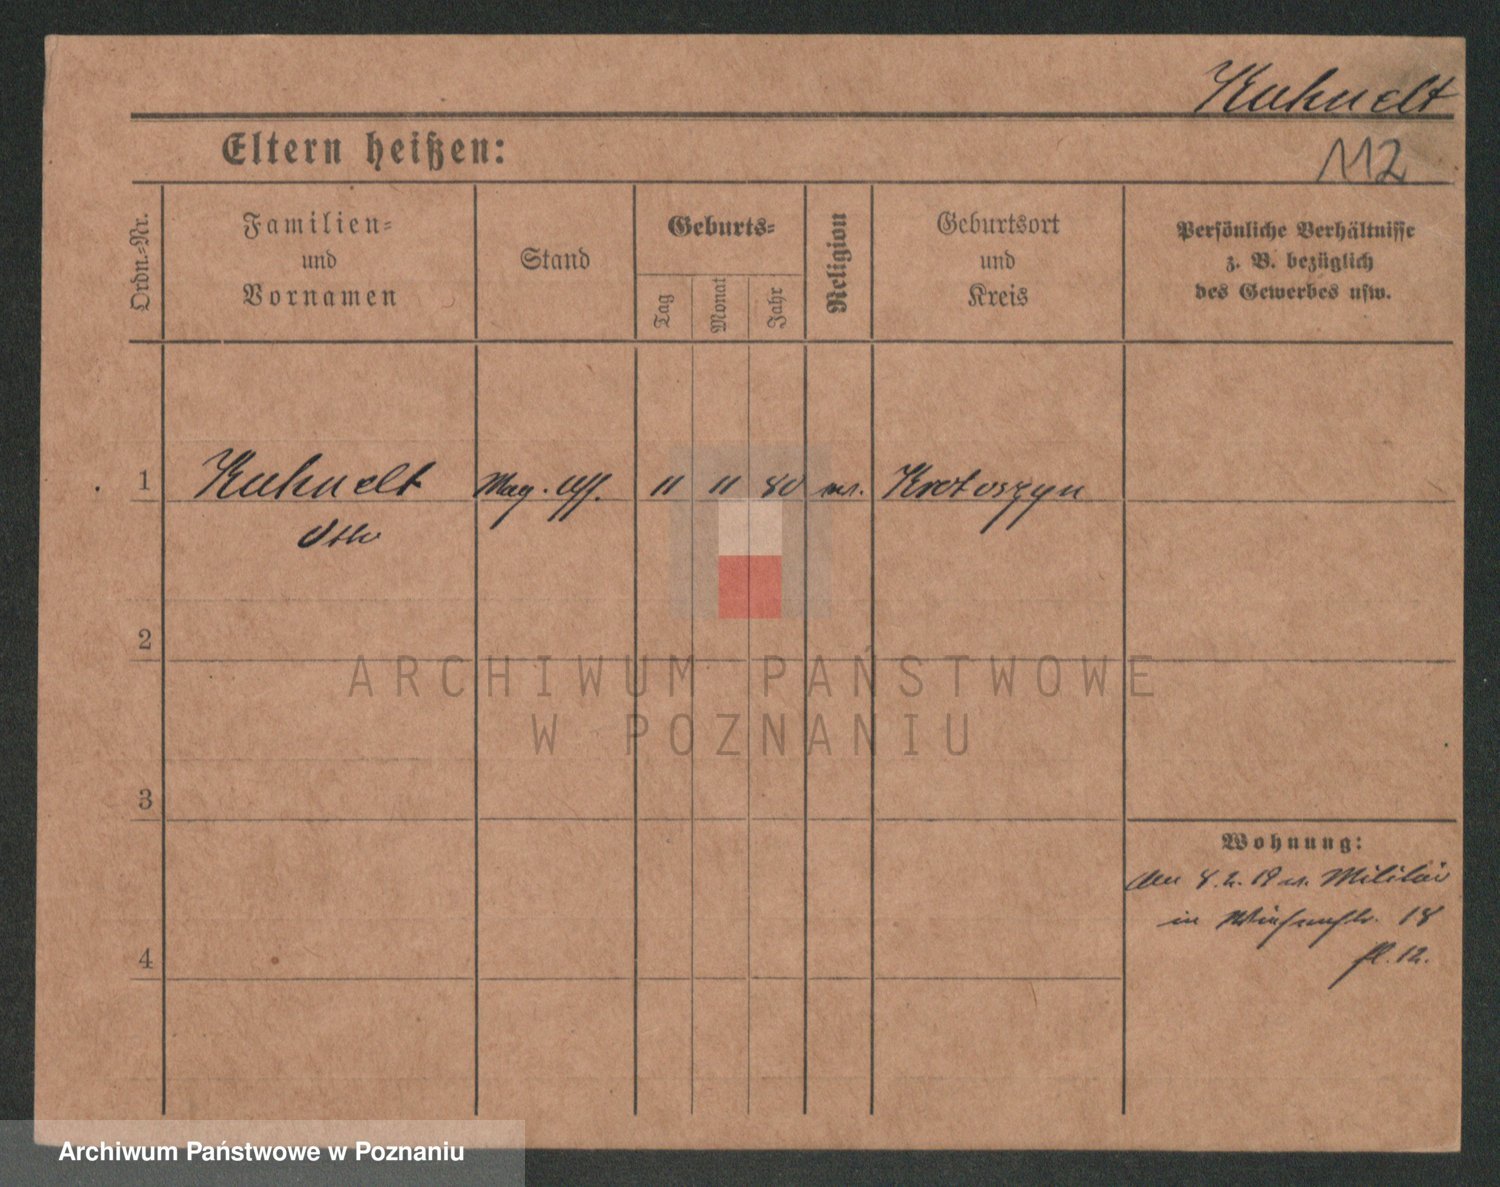 Kuhnelt
Eltern heißen:
112
Ordn.-Nr.
Familien-
und
Vornamen
Stand
Geburts-
Tag
Monat
Jahr
Religion
Geburtsort
und
Kreis
Persönliche Verhältnisse
z. B. bezüglich
des Gewerbes usw.
1 Kuhnelt Mag. Ass. 11 11 80 ev. Krotoszyn
Otto
2
ARCHIWUM PAŃSTWOWE
W POZNANIU
3
Wohnung:
8.2.19 v. Militär
in 18
4
12.
Archiwum Państwowe w Poznaniu